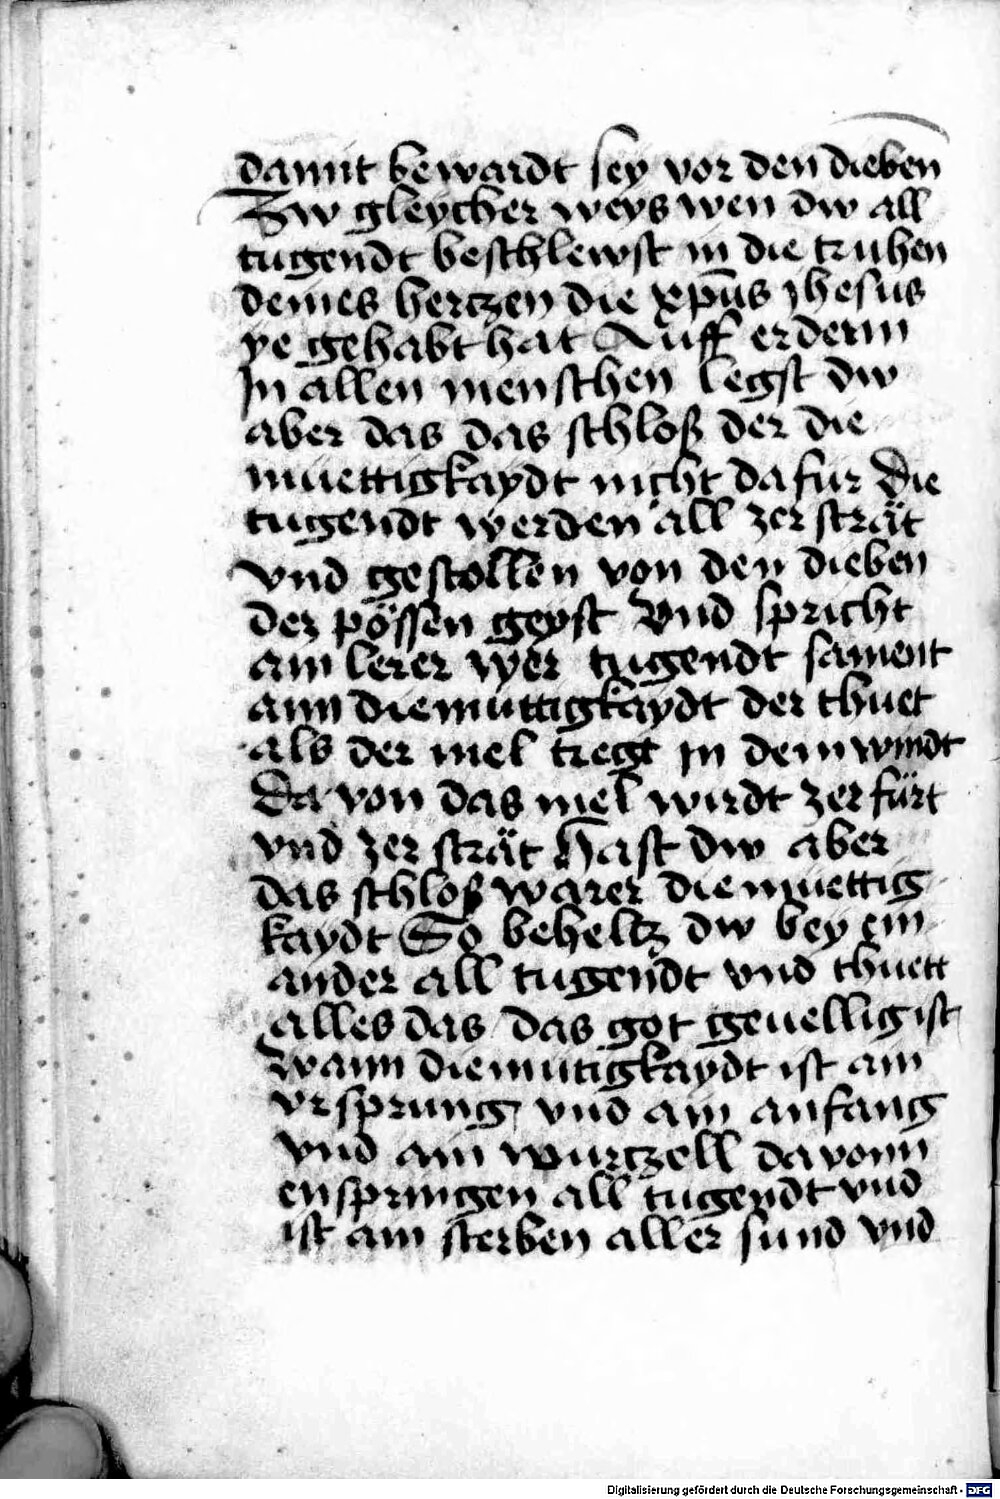 damit bewardt sey vor den dieben
Zw gleycher weys wen dw all
tugendt beschlewst in die truhen
deines hertzen die xpūs yhesus
ye gehabt hat Auff erdenn
In allen menschen legst dw
aber das das schloß der die
muettigkaydt nicht da fur Die
tugendt werden all zer strät
vnd gestollen von den dieben
der pössen geyst Vnd spricht
ain lerer wer tugendt sament
ann diemuttigkaydt der thuet
als der mel tregt in dem windt
Da von das mel wirdt zer fürt
vnd zer strät Hast dw aber
das schloß warer diemuettig
kaydt So beheltz dw bey ein
ander all tugendt vnd thuett
alles das das got geuellig ist
wann diemutigkaydt ist ain
vrsprung vnd ain anfang
vnd ain wurtzell dauonn
enspringen all tugendt vnd
ist ain sterben aller sund vnd
Digitalisierung gefördert durch die Deutsche Forschungsgemeinschaft - DFG